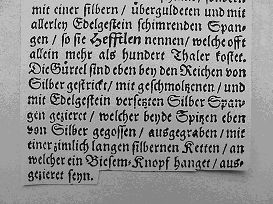 mit einer silbern / überguldeten und mit
allerley Edelgestein schimrenden Span-
gen / so sie Hefftlen nennen / welche offt
allein mehr als hundert Thaler kostet.
Die Gürtel sind eben bey den Reichen von
Silber gestrickt / mit geschmoltzenen / und
mit Edelgestein versetzten Silber Span-
gen gezieret / welcher beyde Spitzen eben
von Silber gegossen / ausgegraben / mit
einer zimlich langen silbernen Ketten / an
welcher ein Biesem-Knopf hanget / aus-
gezieret seyn.